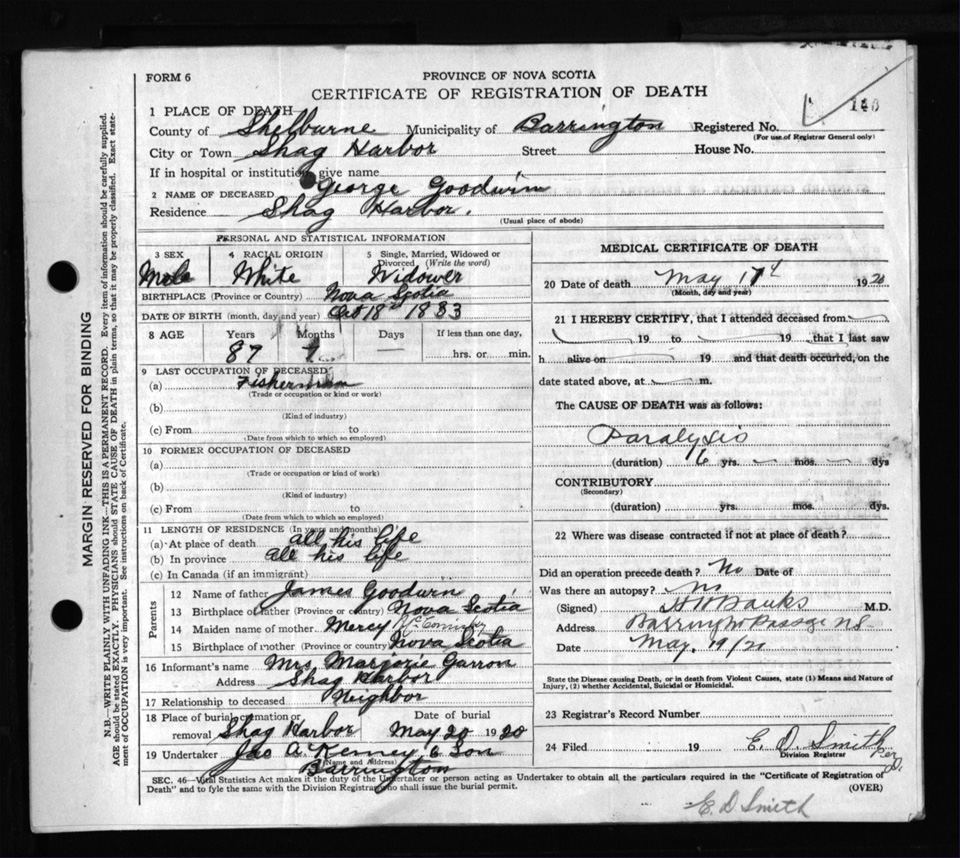 FORM 6
PROVINCE OF NOVA SCOTIA
CERTIFICATE OF REGISTRATION OF DEATH
140
1 PLACE OF DEATH
County of Shelburne Municipality of Barrington Registered No.
(For use of Registrar General only)
City or Town Shag Harbor Street House No.
If in hospital or institution, give name
2 NAME OF DECEASED George Goodwin
Residence Shag Harbor.
(Usual place of abode)
PERSONAL AND STATISTICAL INFORMATION
3 SEX 4 RACIAL ORIGIN 5 Single, Married, Widowed or Divorced (Write the word)
Male White Widower
BIRTHPLACE (Province or Country) Nova Scotia
DATE OF BIRTH (month, day and year) Oct 18th 1833
8 AGE Years Months Days If less than one day,
87 hrs. or min.
9 LAST OCCUPATION OF DECEASED
(a) Fisherman
(Trade or occupation or kind or work)
(b)
(Kind of industry)
(c) From to
(Date from which to which so employed)
10 FORMER OCCUPATION OF DECEASED
(a)
(Trade or occupation or kind of work)
(b)
(Kind of industry)
(c) From to
(Date from which to which so employed)
11 LENGTH OF RESIDENCE (In years and months)
(a) At place of death all his life
(b) In province all his life
(c) In Canada (if an immigrant)
Parents
12 Name of father James Goodwin
13 Birthplace of father (Province or country) Nova Scotia
14 Maiden name of mother Mercy
15 Birthplace of mother (Province or country) Nova Scotia
16 Informant's name Mrs. Marjorie Garron
Address Shag Harbor
17 Relationship to deceased Neighbor
18 Place of burial, cremation or removal Shag Harbor Date of burial May 20 1920
19 Undertaker Jas A. Kenney & Son
(Name and Address)
Barrington
MEDICAL CERTIFICATE OF DEATH
20 Date of death May 17th 1920
(Month, day and year)
21 I HEREBY CERTIFY, that I attended deceased from
19 to 19 that I last saw
h alive on 19 and that death occurred, on the
date stated above, at m.
The CAUSE OF DEATH was as follows:
Paralysis
(duration) 6 yrs. mos. dys
CONTRIBUTORY
(Secondary)
(duration) yrs. mos. dys
22 Where was disease contracted if not at place of death?
Did an operation precede death? No Date of
Was there an autopsy? No
(Signed) H H Banks M.D.
Address Barrington Passage N.S.
Date May. 19/20
State the Disease causing Death, or in death from Violent Causes, state (1) Means and Nature of
Injury, (2) whether Accidental, Suicidal or Homicidal.
23 Registrar's Record Number
24 Filed 19 E. D. Smith
Division Registrar
SEC. 46—Vital Statistics Act makes it the duty of the Undertaker or person acting as Undertaker to obtain all the particulars required in the "Certificate of Registration of
Death" and to fyle the same with the Division Registrar who shall issue the burial permit. (OVER)
E. D Smith
MARGIN RESERVED FOR BINDING
N.B.—WRITE PLAINLY WITH UNFADING INK—THIS IS A PERMANENT RECORD. Every item of information should be carefully supplied.
AGE should be stated EXACTLY. PHYSICIANS should STATE CAUSE OF DEATH in plain terms, so that it may be properly classified. Exact state-
ment of OCCUPATION is very important. See instructions on back of Certificate.